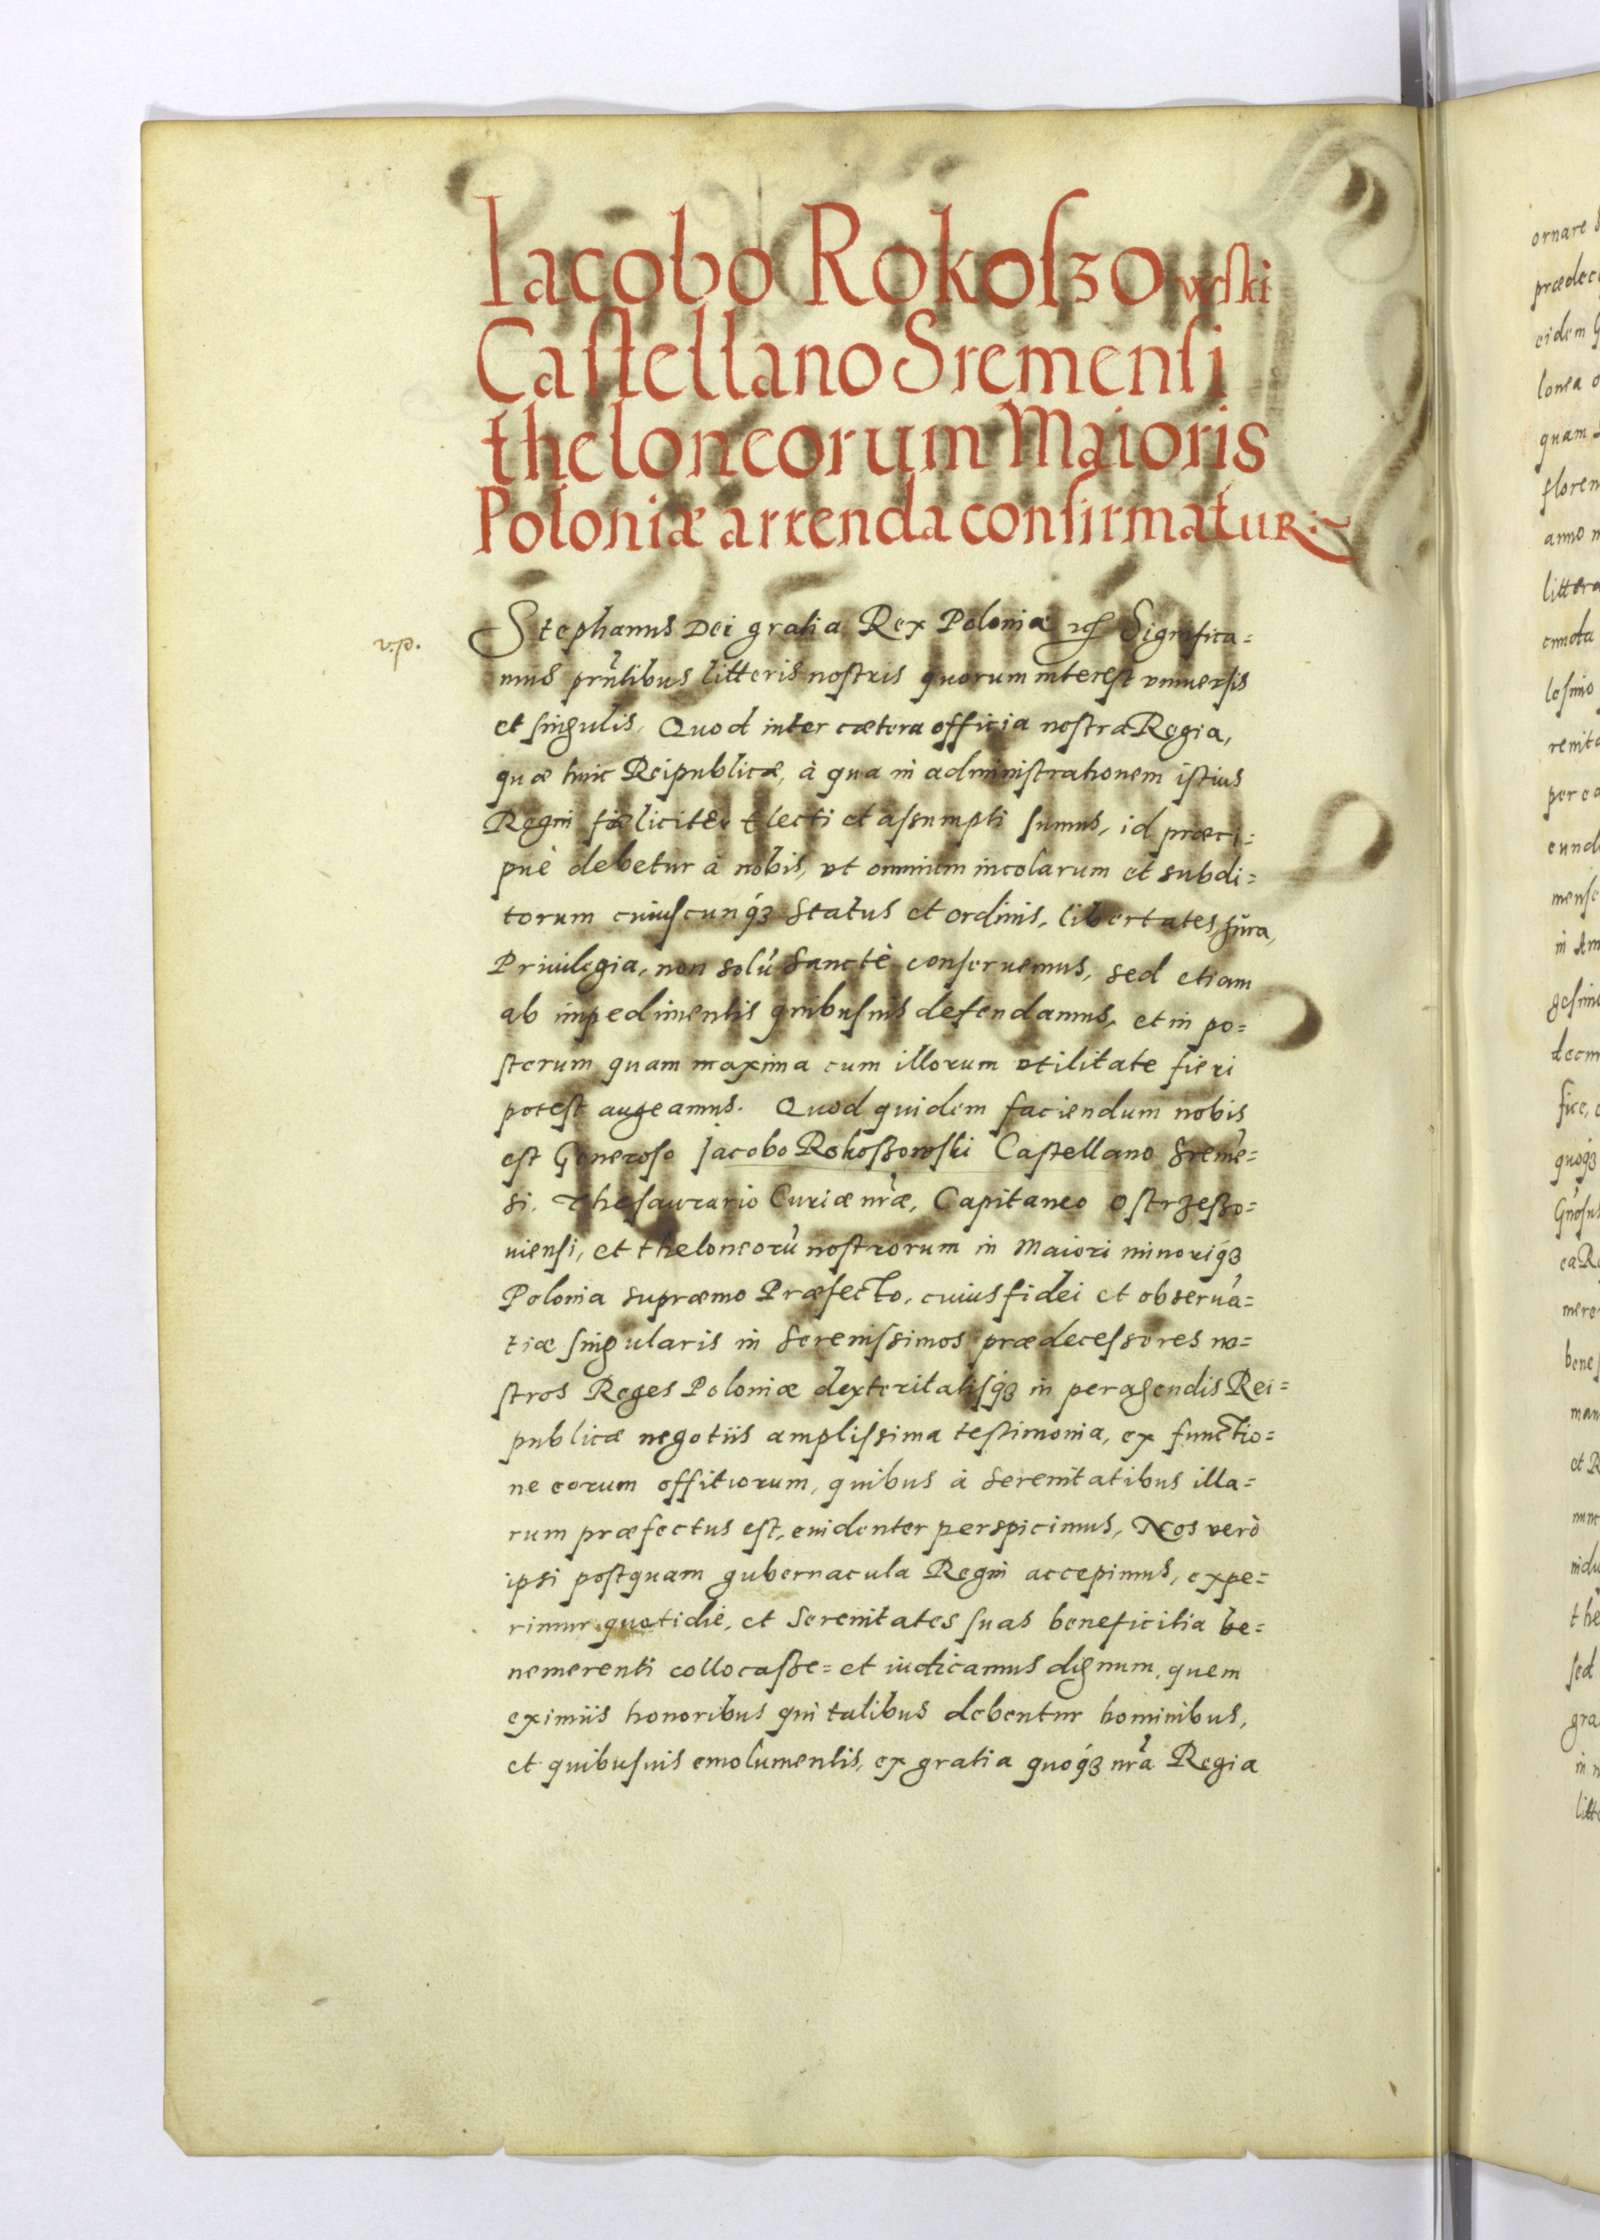 Iacobo Rokoſzowſki
Caſtellano Sremenſi
theloneorum Maioris
Poloniæ arrenda confirmatur
v.p.
Stephanus Dei gratia Rex Poloniæ Significa=
mus prn̄tibus litteris nostris quorum interest vniuersis
et singulis. Quod inter cætera officia nostra Regia,
quæ huic Reipublicæ, à qua in administrationem istius
Regni fæliciter electi et assumpti sumus, id præci=
puè debetur à nobis, vt omnium incolarum et subdi=
torum cuiuscunq́ȝ status et ordinis, libertates, Iura,
Priuilegia, non solū sanctè conseruemus, sed etiam
ab impedimentis quibusuis defendamus, et in po=
sterum quam maxima cum illorum vtilitate fieri
potest augeamus. Quod quidem faciendum nobis
est Generoso Jacobo Rokoszowski Castellano Sremē=
si. Thesaurario Curiæ nr̄æ, Capitaneo Ostrzeszo=
uiensi, et theloneorū nostrorum in Maiori minoriq́ȝ
Polonia supræmo Præfecto, cuius fidei et obseruā=
tiæ singularis in Serenissimos prædecessores no=
stros Reges Poloniæ dexteritatisq́ȝ in peragendis Rei=
publicæ negotiis amplissima testimonia, ex functio=
ne eorum offitiorum, quibus à Serenitatibus illa=
rum præfectus est, euidenter perspicimus, Nos verò
ipsi postquam gubernacula Regni accepimus, expe=
rimur quotidie, et Serenitates suas beneficitia be=
nemerenti collocasse= et iudicamus dignum, quem
eximiis honoribus qui talibus debentur hominibus,
et quibusuis emolumentis, ex gratia quoq́ȝ nr̄a Regia